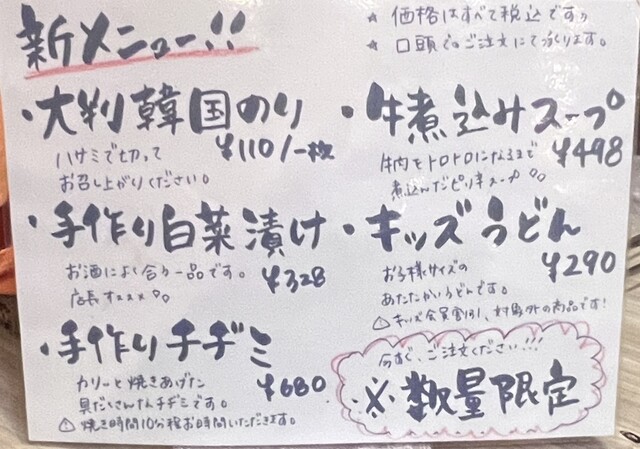 新メニュー!!
★ 価格はすべて税込です♪
★ 口頭でのご注文にて承ります。
・大判韓国のり
¥110/一枚
ハサミで切って
お召し上がりください。
・手作り白菜漬け
¥328
お酒によく合う一品です。
店長オススメ
・手作りチヂミ
¥680
カリーッと焼きあげた
具だくさんなチヂミです。
⚠焼き時間10分程お時間いただきます。
・牛煮込みスープ
¥498
牛肉をトロトロになるまで
煮込んだピリ辛スープ
・キッズうどん
¥290
お子様サイズの
あたたかいうどんです。
⚠キッズ会員割引、対象外の商品です!
今すぐ、ご注文ください!!!
※数量限定